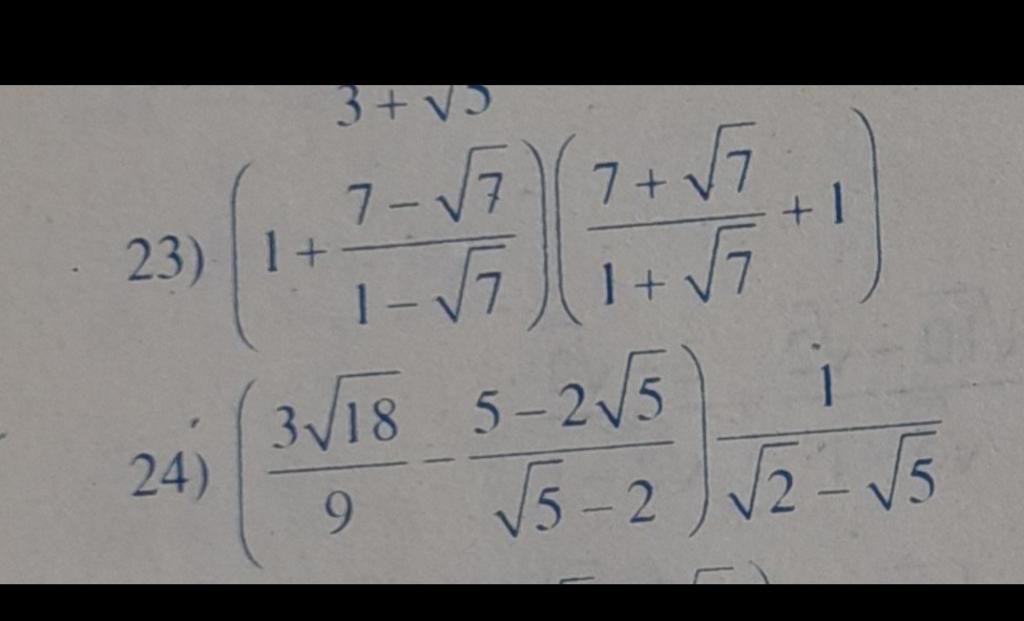 3 + √5
23) (1 + (7 − √7)/(1 − √7))((7 + √7)/(1 + √7) + 1)
24) ((3√18)/9 − (5 − 2√5)/(√5 − 2)) 1/(√2 − √5)